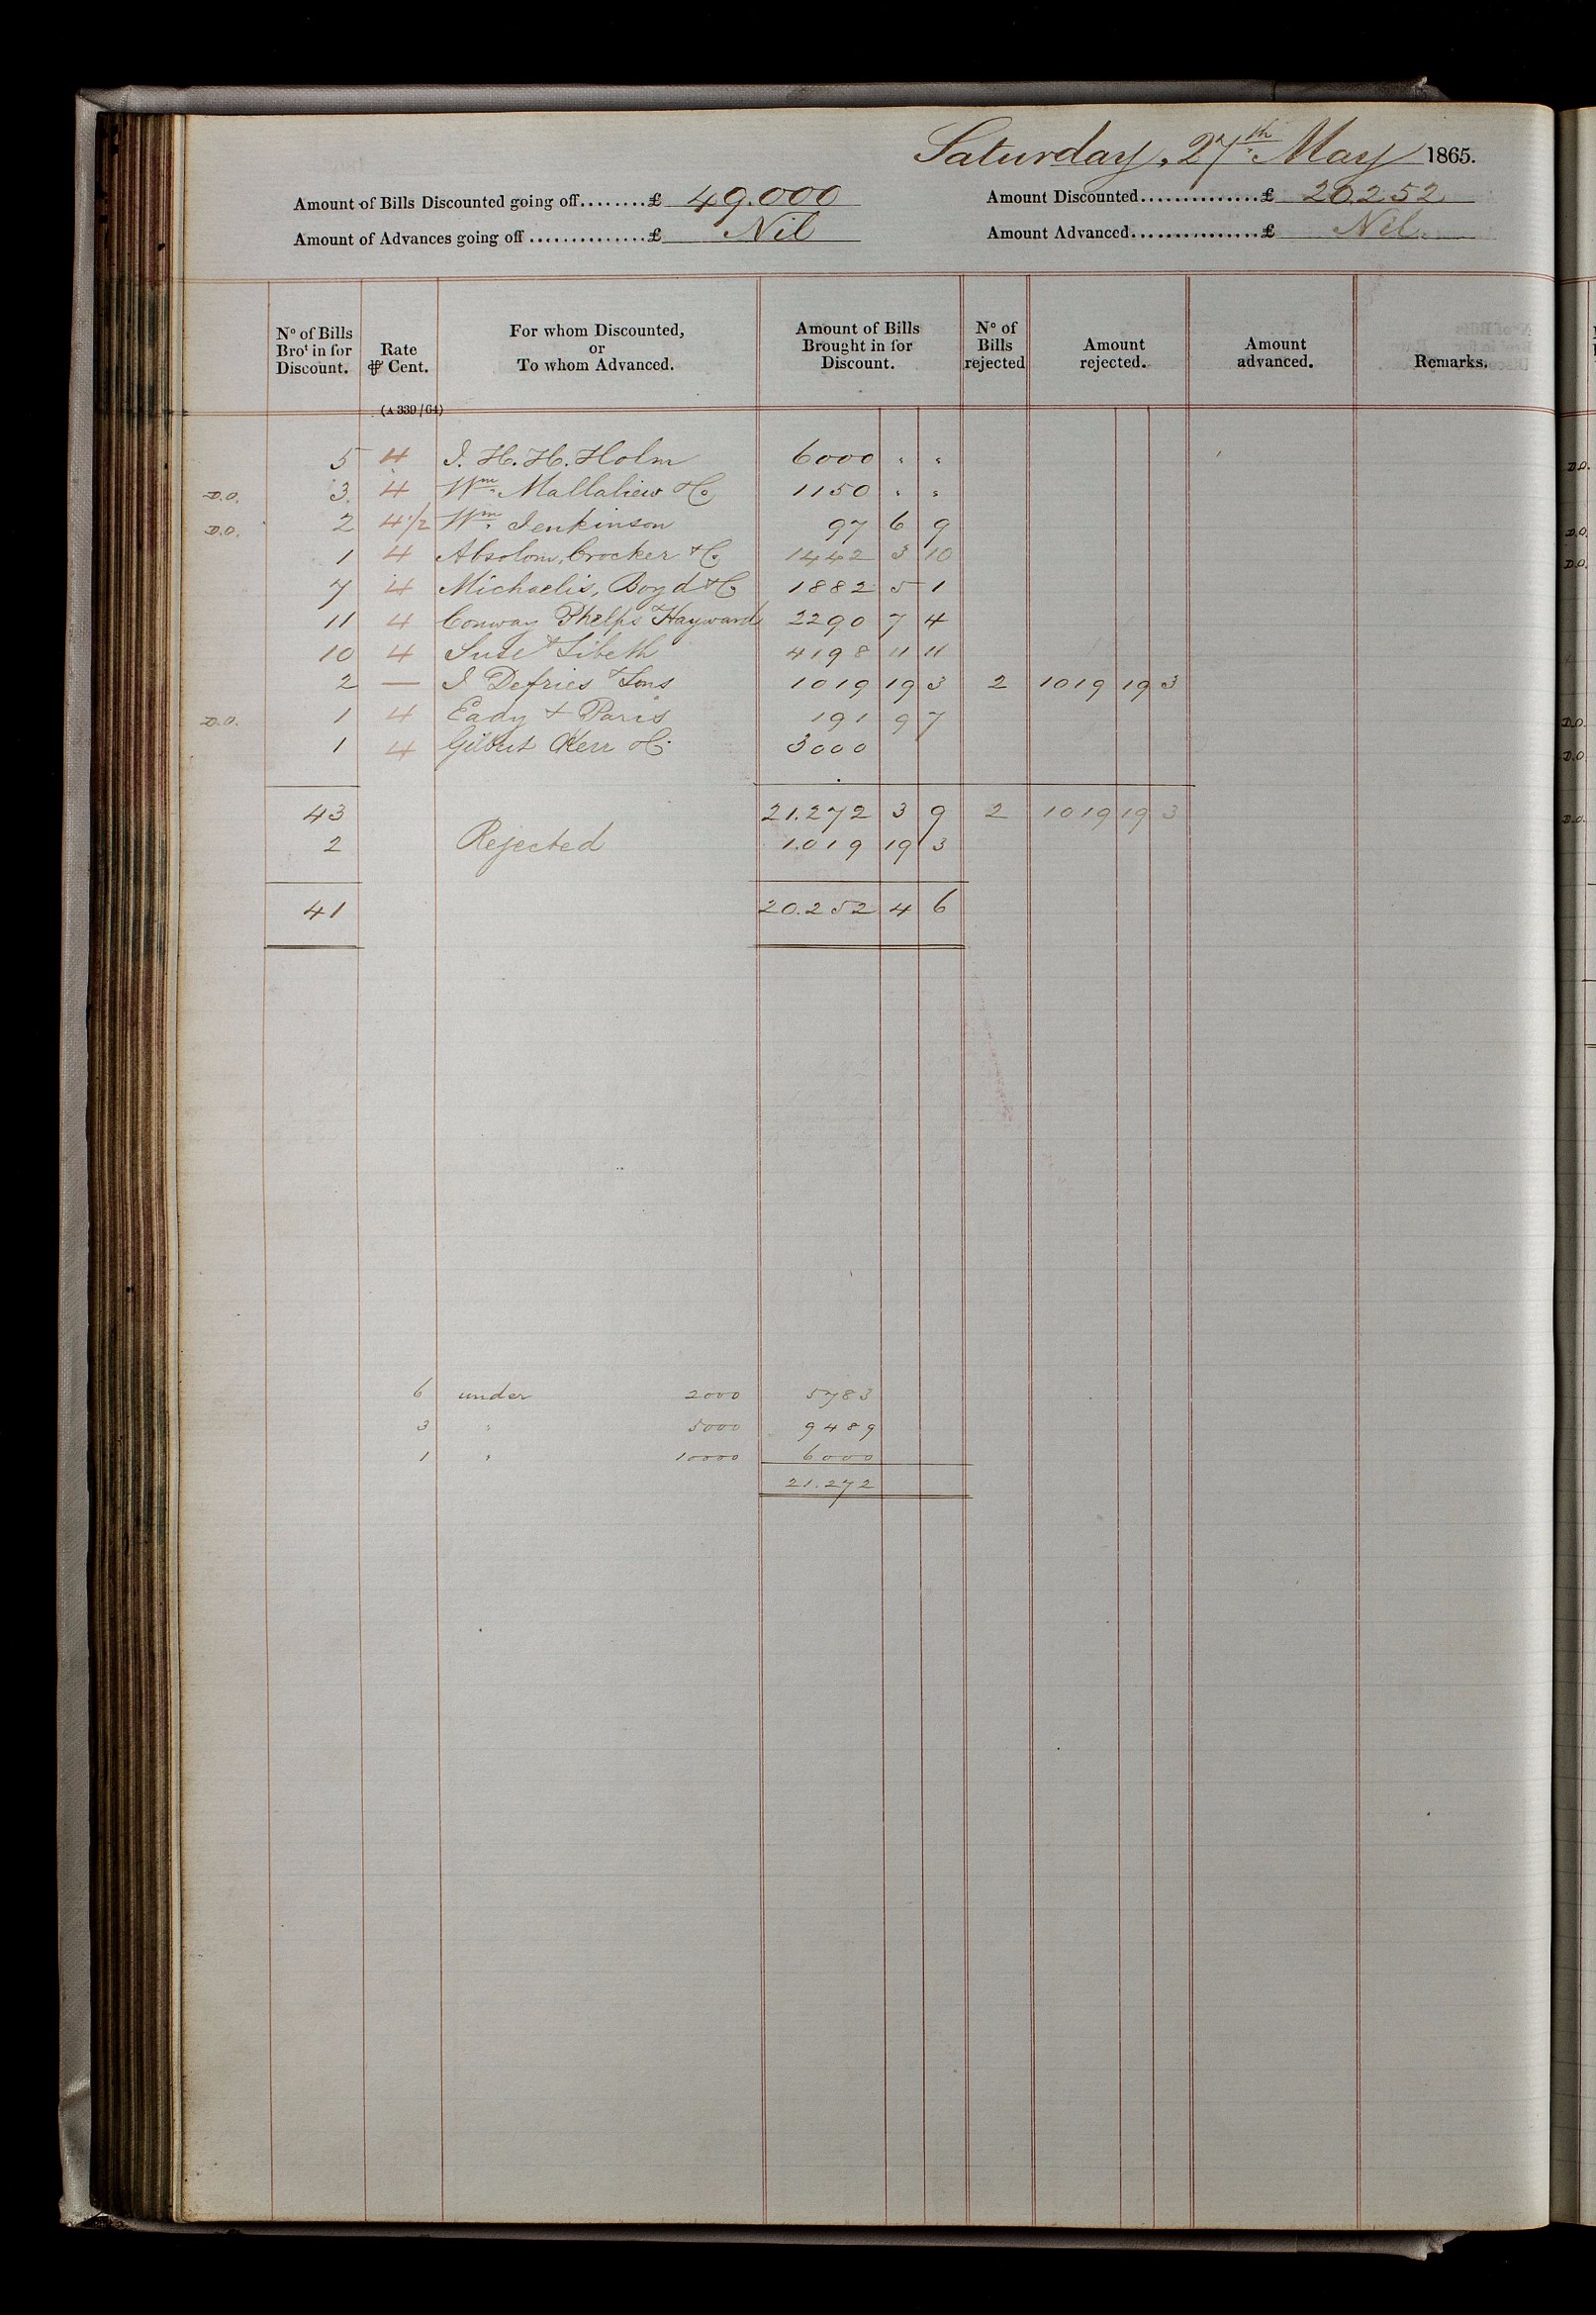 Saturday, 27th May 1865.
Amount of Bills Discounted going off........£ 49.000 Amount Discounted...............£ 20252
Amount of Advances going off ..............£ Nil Amount Advanced.................£ Nil.
No of Bills Brot in for Discount. Rate ⅌ Cent. For whom Discounted, or To whom Advanced. Amount of Bills Brought in for Discount. No of Bills rejected Amount rejected. Amount advanced. Remarks.
(A 339/64)
5 4 J. H. H. Holm 6000 " "
D.O. 3 4 Wm. Mallalieu & Co 1150 " "
D.O. 2 4 1/2 Wm. Jenkinson 97 6 9
1 4 Absolom, Crocker & Co 1442 3 10
7 4 Michaelis, Boyd & Co 1882 5 1
11 4 Conway Phelps & Hayward 2290 7 4
10 4 Suse & Sibeth 4198 11 11
2 — J Defries & Sons 1019 19 3 2 1019 19 3
D.O. 1 4 Eady & Paris 191 9 7
1 4 Gilbert Kerr & Co 3000
43 21.272 3 9 2 1019 19 3
2 Rejected 1.019 19 3
41 20.252 4 6
6 under 2000 5783
3 " 5000 9489
1 " 10000 6000
21.272